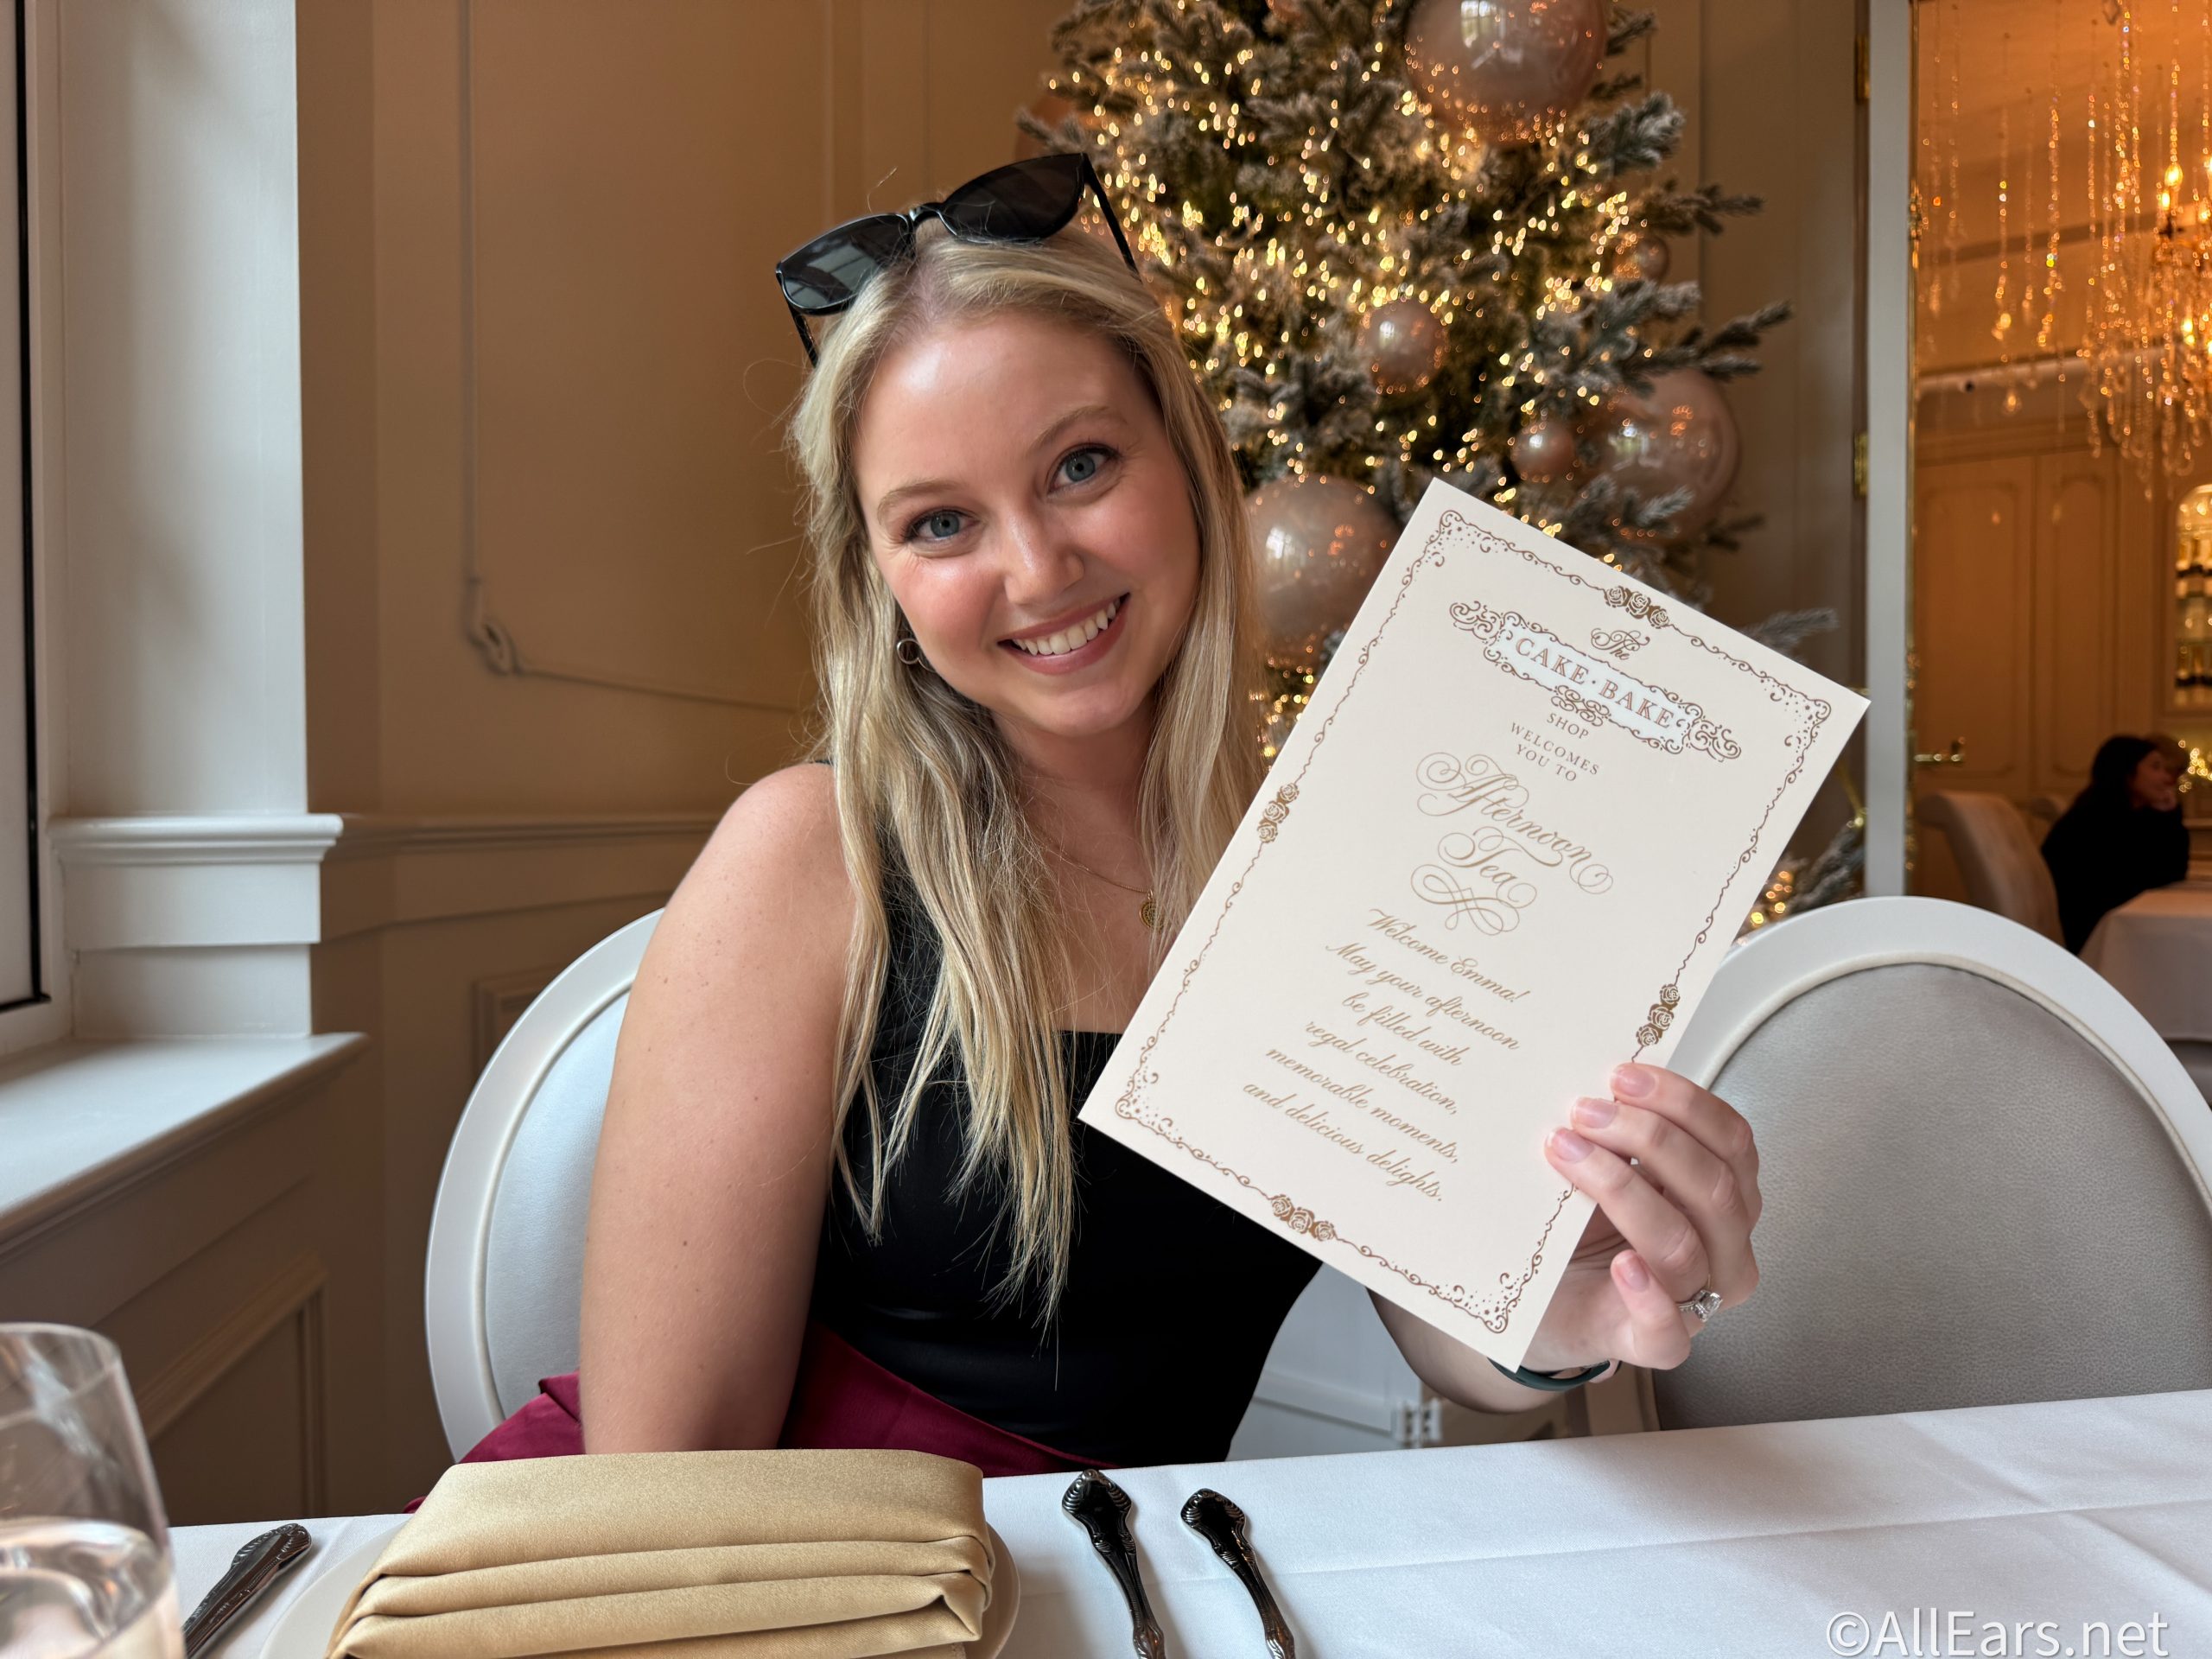 The
CAKE·BAKE
SHOP
WELCOMES
YOU TO
Afternoon
Tea
Welcome Emma!
May your afternoon
be filled with
regal celebration,
memorable moments,
and delicious delights.
©AllEars.net